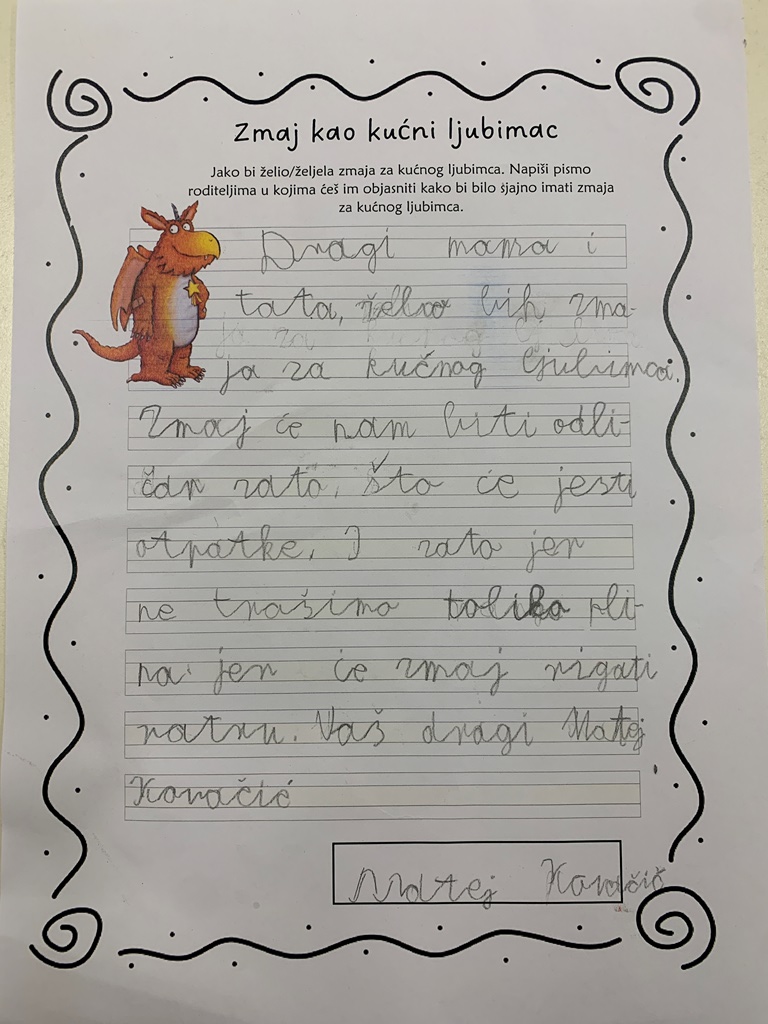 Zmaj kao kućni ljubimac
Jako bi želio/željela zmaja za kućnog ljubimca. Napiši pismo
roditeljima u kojima ćeš im objasniti kako bi bilo sjajno imati zmaja
za kućnog ljubimca.
Dragi mama i
tata, želio bih zma-
ja za kučnog ljubimca.
Zmaj će nam biti odli-
čan zato što će jesti
otpatke. I zato jer
ne trašimo toliko pli-
na jer će zmaj rigati
vatru. Vaš dragi Matej
Kovačić
Matej Kovačić